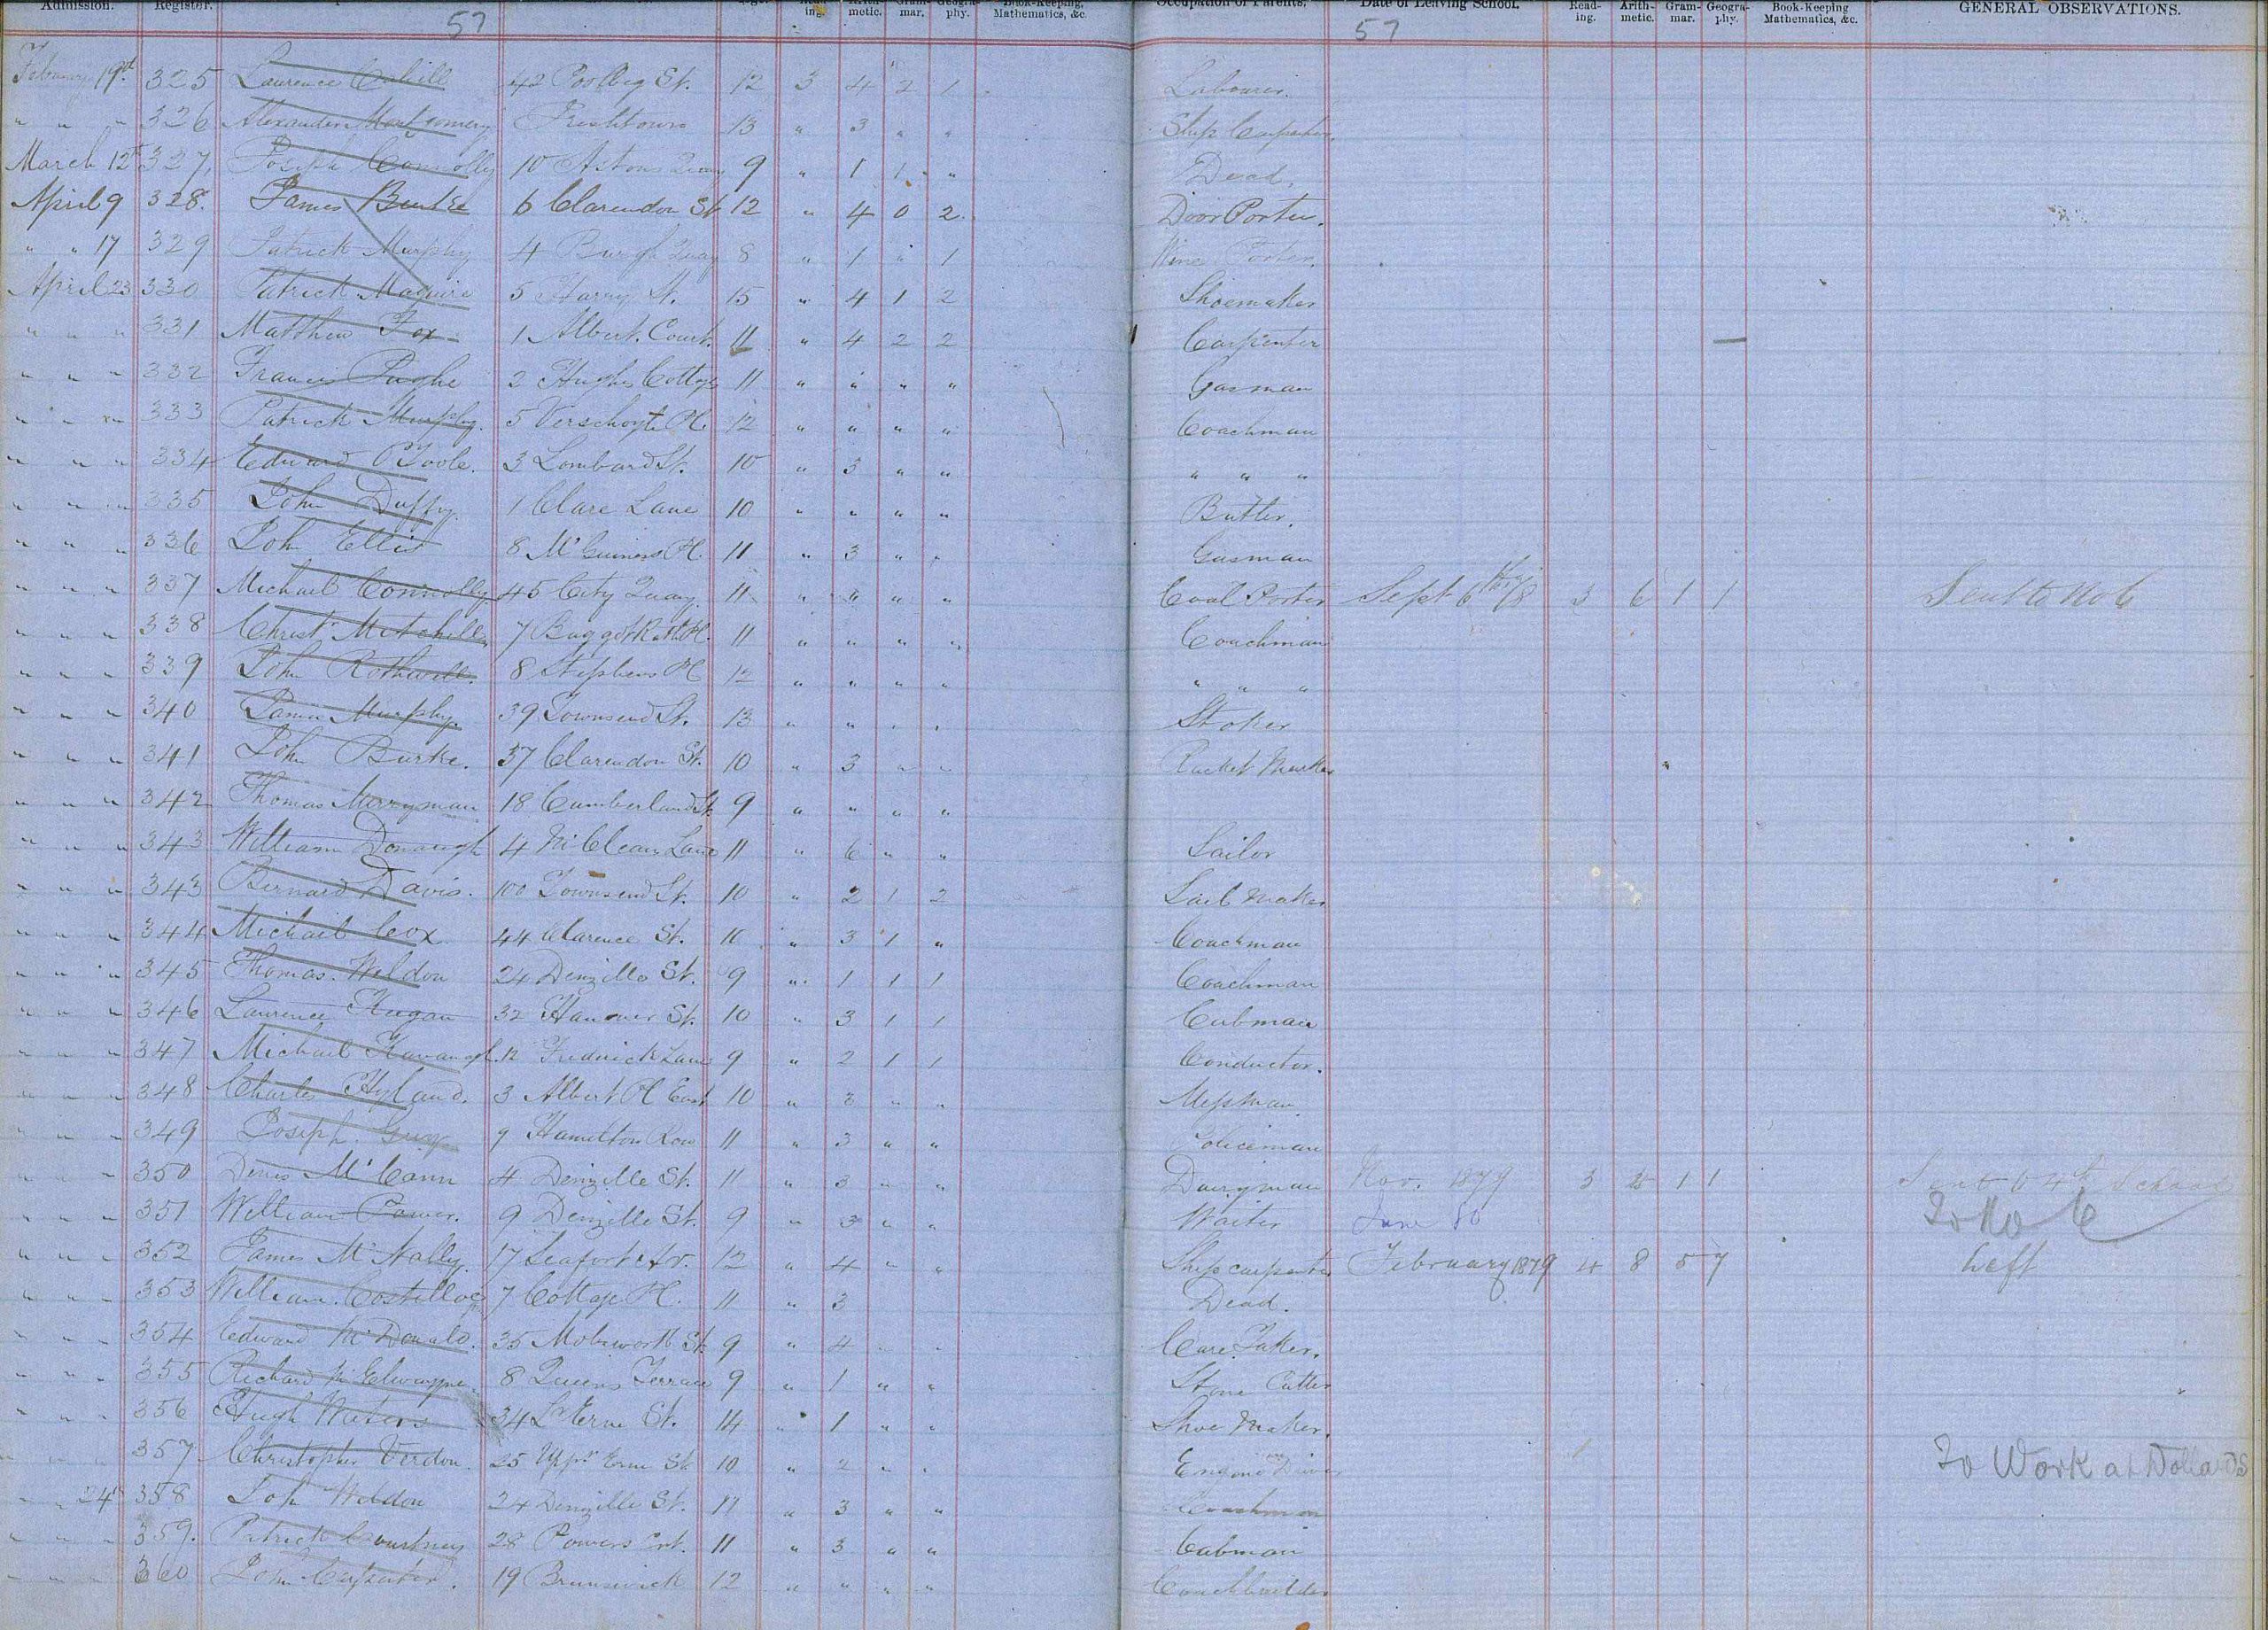 Admission. Register. Age. Read-ing. Arith-metic. Gram-mar. Geogra-phy. Book-Keeping, Mathematics, &c. Occupation of Parents. Date of Leaving School. Read-ing. Arith-metic. Gram-mar. Geogra-phy. Book-Keeping Mathematics, &c. GENERAL OBSERVATIONS.
57 57
February 19th 325 Laurence Cahill 42 Poolbeg St. 12 3 4 2 1 Labourer.
" " " 326 Alexander Montgomery 13 " 3 " " Ship Carpenter.
March 12th 327 Joseph Connolly 10 Astons Quay 9 " 1 1 " Dead.
April 9 328. James Burke 6 Clarendon St 12 " 4 0 2. Door Porter.
" " 17 329 Patrick Murphy 4 Burgh Quay 8 " 1 " 1 Wine Porter.
April 23 330 Patrick Maguire 5 Harry St. 15 " 4 1 2 Shoemaker
" " " 331 Matthew Fox 1 Albert. Court. 11 " 4 2 2 Carpenter
" " " 332 Francis Pughe 2 Hughs Cottage 11 " " " " Gasman
" " " 333 Patrick Murphy. 5 Verschoyle Pl. 12 " " " " Coachman
" " " 334 Edward O'Toole. 3 Lombard St. 10 " 3 " " " " "
" " " 335 John Duffy. 1 Clare Lane 10 " " " " Butler.
" " " 336 John Ellis 8 Pl. 11 " 3 " " Gasman
" " " 337 Michael Connolly 45 City Quay. 11 " " " " Coal Porter Sept 6th 78 3 6 1 1 Sent to No 6
" " " 338 Christr Mitchell 7 Baggotrath Pl. 11 " " " " Coachman
" " " 339 John Rothwell. 8 Stephens Pl 12 " " " " " " "
" " " 340 James Murphy. 39 Townsend St. 13 " " " " Stoker
" " " 341 John Burke. 37 Clarendon St. 10 " 3 " " Racket Marker
" " " 342 Thomas Merryman 18 Cumberland St. 9 " " " "
" " " 343 William Donaugh 4 McCleans Lane 11 " 6 " " Sailor
" " " 343 Bernard Davis. 100 Townsend St. 10 " 2 1 2 Sail Maker
" " " 344 Michael Cox 44 Clarence St. 10 " 3 1 " Coachman
" " " 345 Thomas. Weldon 24 Denzille St. 9 " 1 1 1 Coachman
" " " 346 Laurence Keegan 32 Hanover St. 10 " 3 1 1 Cabman
" " " 347 Michael Kavanagh. 12 Frederick Lane 9 " 2 1 1 Conductor.
" " " 348 Charles Hyland. 3 Albert Pl East 10 " 3 " " Messman.
" " " 349 Joseph 9 Hamilton Row 11 " 3 " " Policeman
" " " 350 Denis McCann 4 Denzille St. 11 " 3 " " Dairyman Nov. 1879 3 1 1 Sent to 4th School
" " " 351 William Power. 9 Denzille St. 9 " 3 " " Waiter June 80 To No 6
" " " 352 James McNally. 17 Seafort Av. 12 " 4 " " Ship carpenter February 1879 4 8 5 7 Left
" " " 353 William Costelloe 7 Cottage Pl. 11 " 3 Dead.
" " " 354 Edward McDonald. 35 Molesworth St. 9 " 4 " " Care Taker.
" " " 355 Richard 8 Queens Terrace 9 " 1 " " Stone Cutter
" " " 356 Hugh Waters 34 Lr Erne St. 14 " 1 " " Shoe Maker.
" " " 357 Christopher Verdon 25 Uppr Erne St 10 " 2 " " Engine Driver To Work at Dollards
" " 24th 358 Joh Weldon 24 Denzille St. 11 " 3 " " Coachman
" " " 359. Patrick Courtney 28 Powers Crt. 11 " 3 " " Cabman
" " " 360 John Carpenter. 19 Brunswick 12 " " " " Coachbuilder